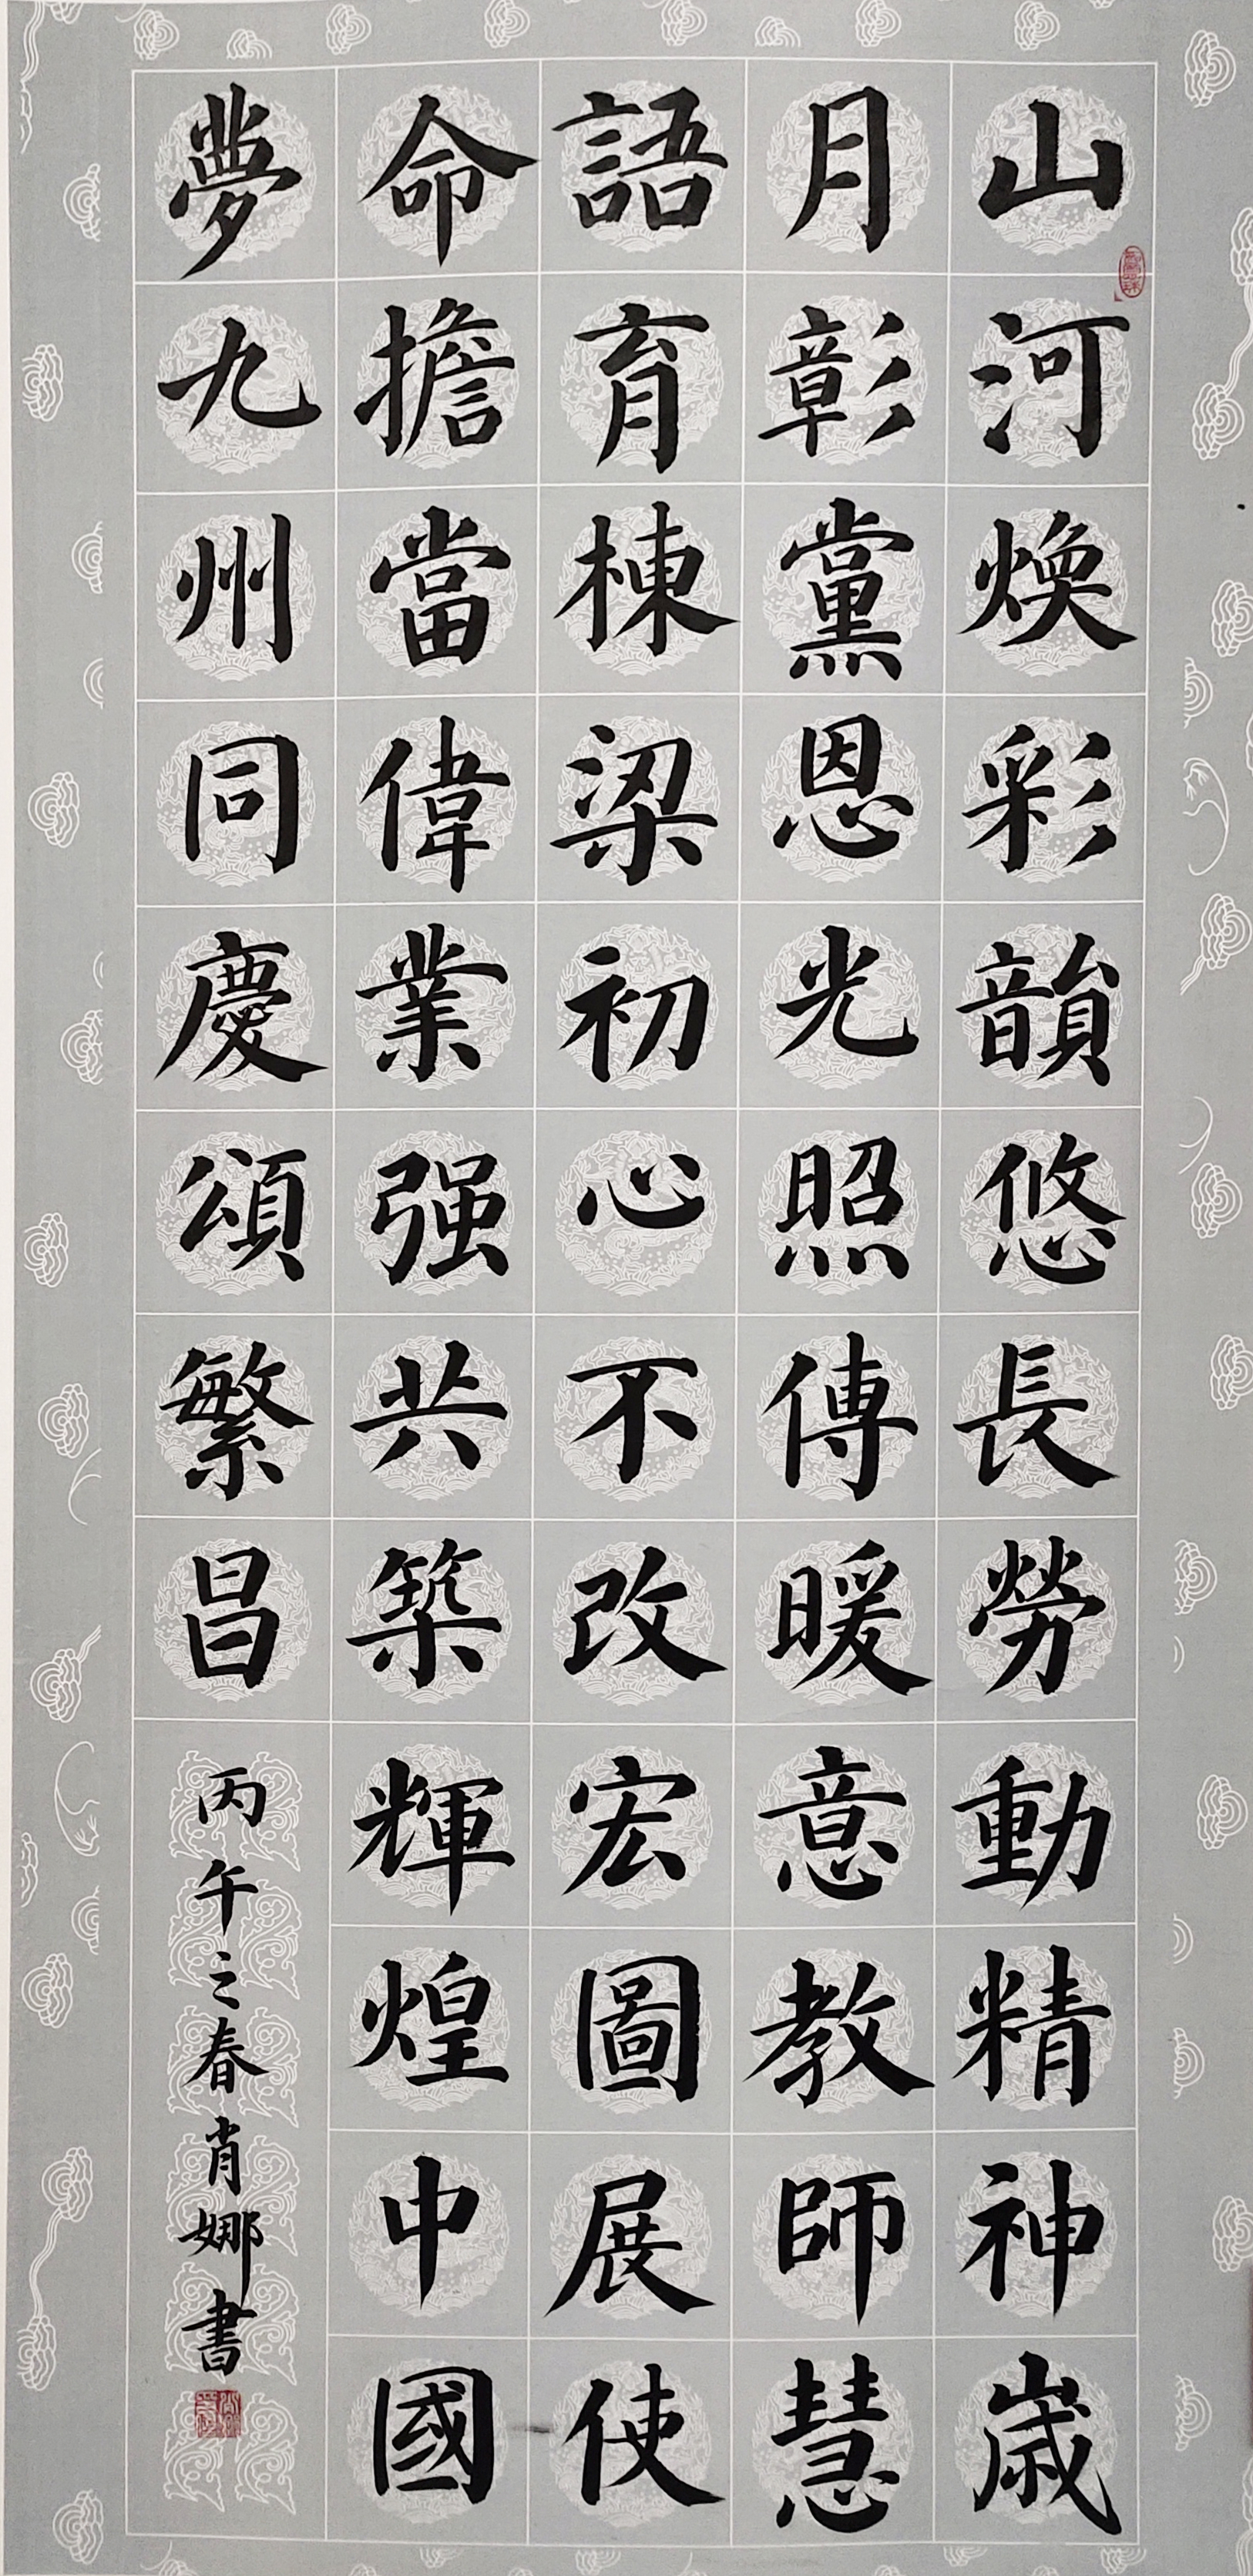 山河焕彩韻悠長勞動精神歲
月彰黨恩光照傳暖意教師慧
語育棟梁初心不改宏圖展使
命擔當偉業强共築輝煌中國
夢九州同慶頌繁昌
丙午之春肖娜書